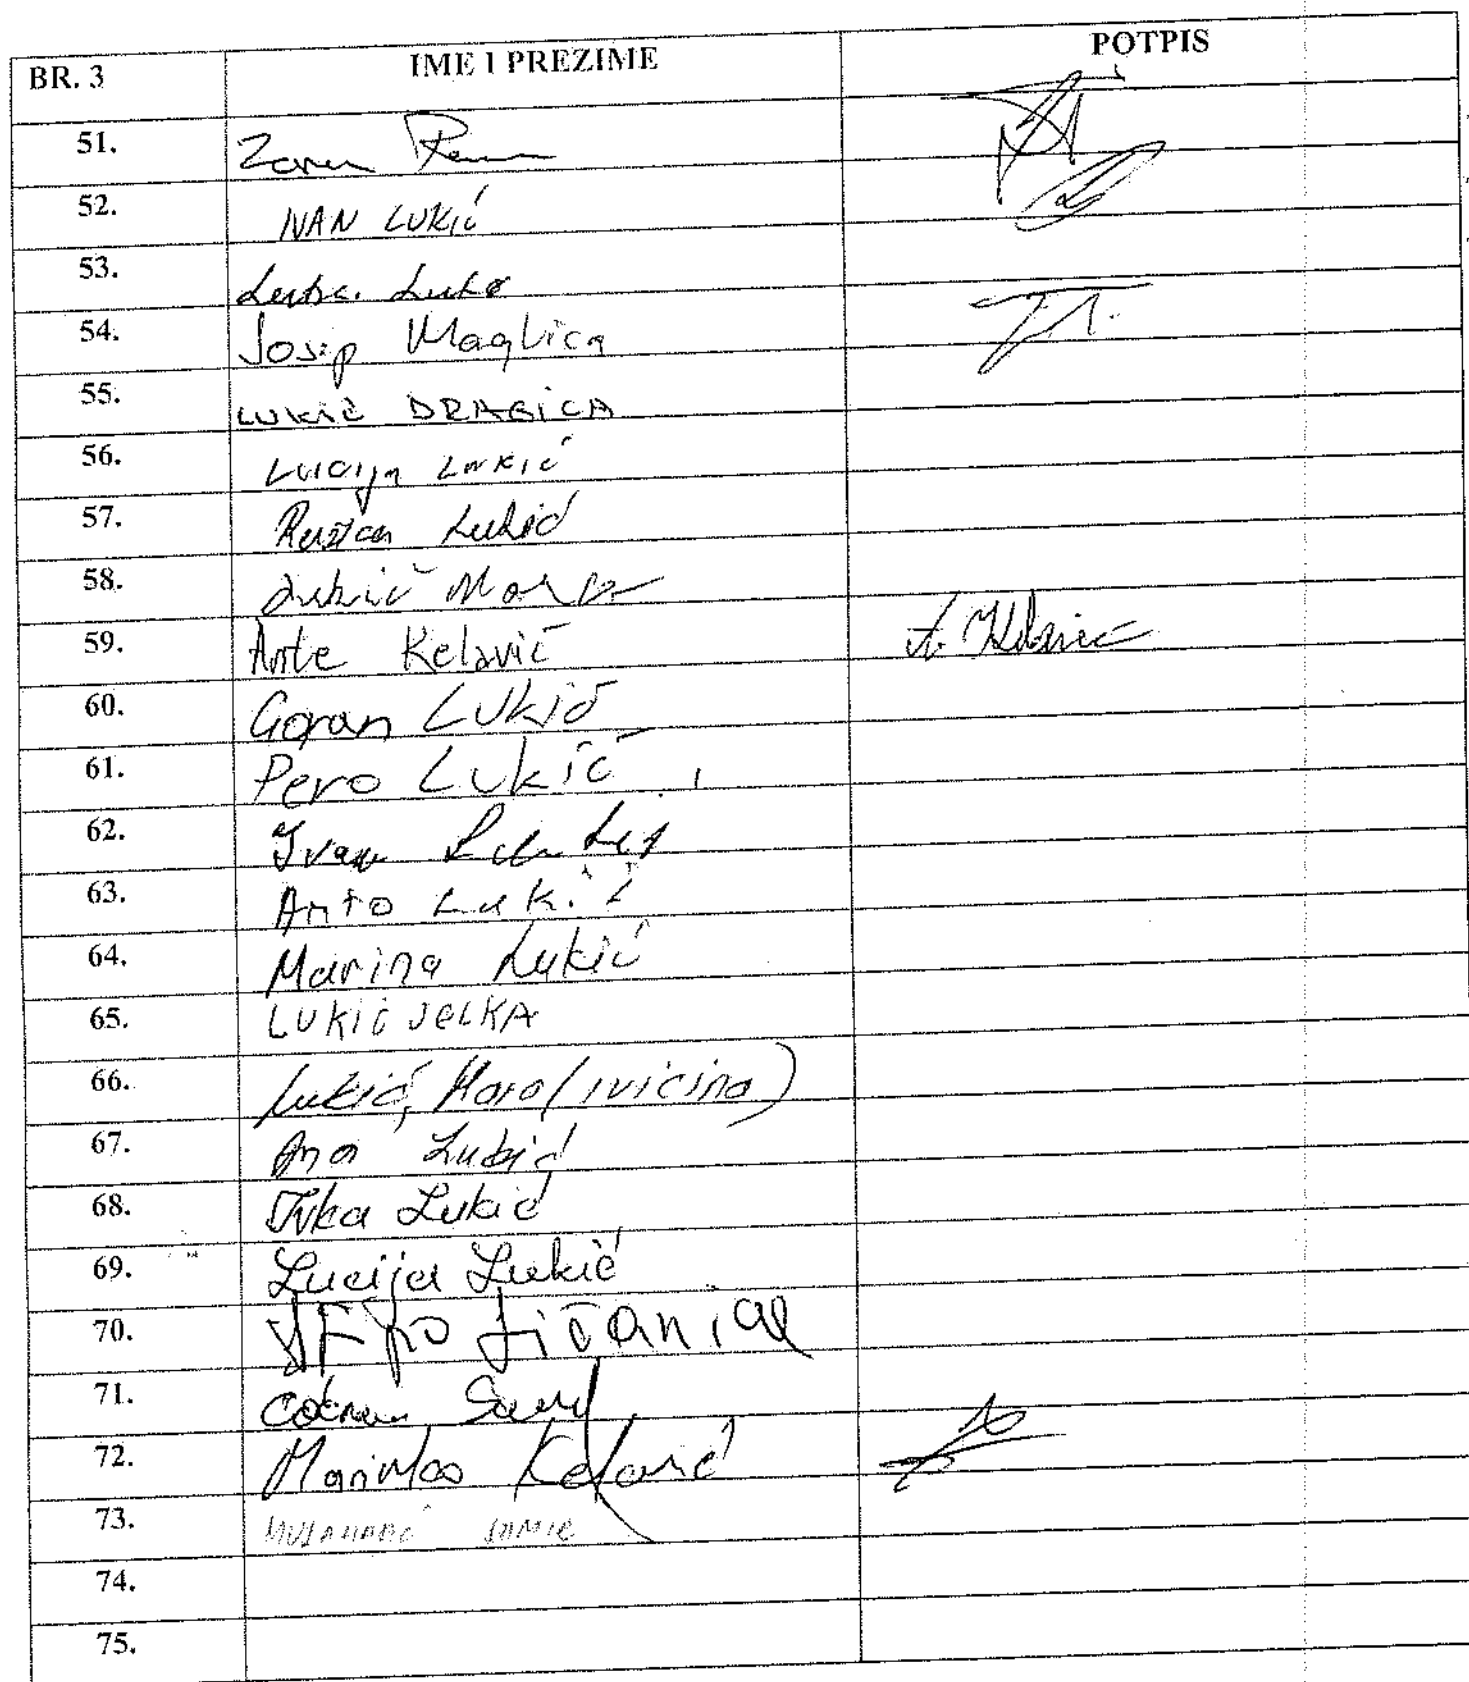 BR. 3 IME I PREZIME POTPIS
51. Zoran
52. IVAN LUKIĆ
53.
54. Josip Maglica J.M.
55. LUKIĆ DRAGICA
56. Lucija Lukić
57. Ruzica Lukić
58. Lukić Mara
59. Ante Kelavić A. Kelavić
60. Goran Lukić
61. Pero Lukić
62. Ivan
63. Anto Lukić
64. Marina Lukić
65. LUKIĆ JELKA
66. Lukić, Mara (ivicina)
67. Ana Lukić
68. Ivka Lukić
69. Lucija Lukić
70.
71.
72. Marinko Kelavić
73.
74.
75.